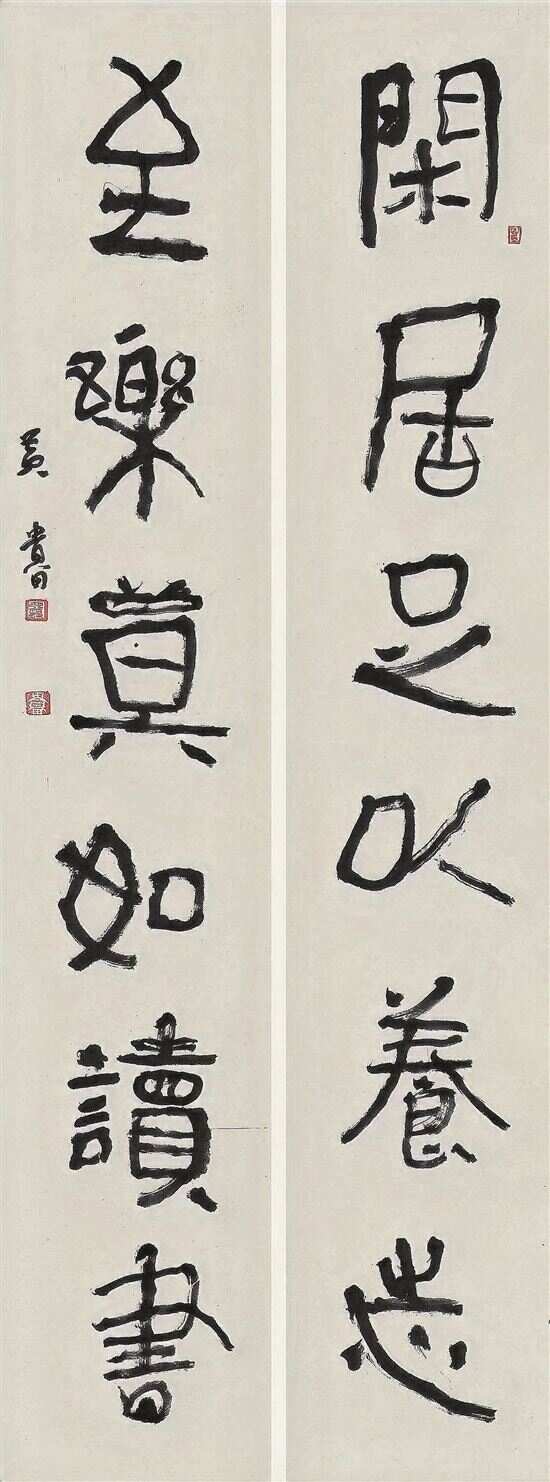 閑居足以養志
至樂莫如讀書
黄